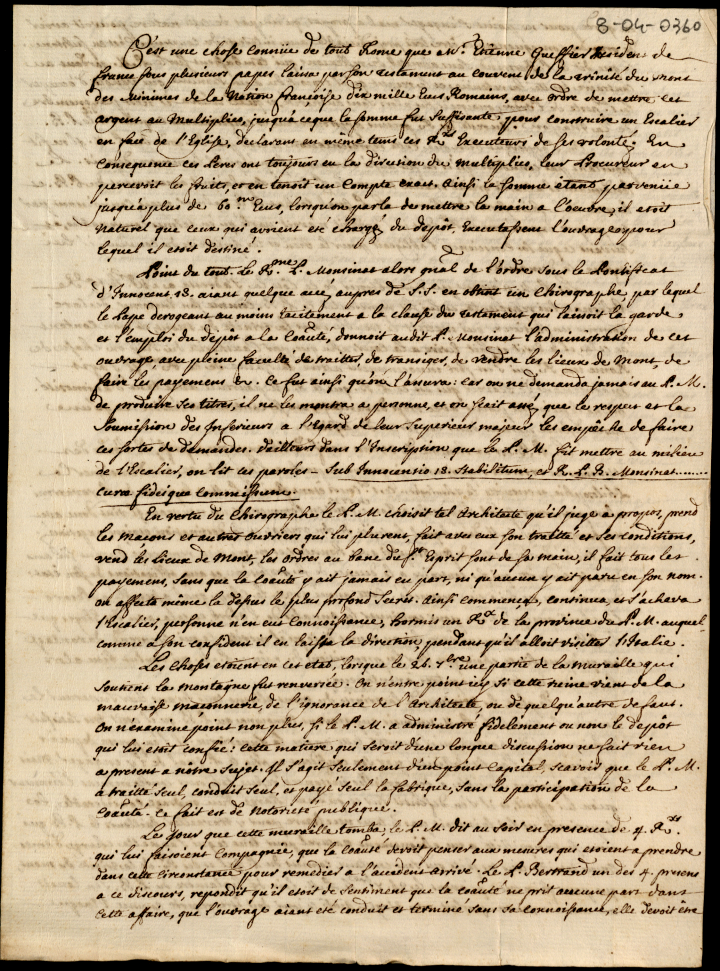 8-04-0360
C'est une chose connüe de tout Rome que Mr. Etienne Gueffier Residen de
France sous plusieurs papes laissa par son testament au couvent de la trinité du mont
des Minimes de la Nation françoise dix mille Ecus Romains, avec ordre de mettre cet
argent au Multiplies, jusqu'a ceque la somme fut suffisante pour construire un Escalier
en face de l'Eglise, declarant en même tems ces Rx Executeurs de ses volonté. En
consequence ces Peres ont toujours eu la direction du Multiplies, leur Procureur en
percevoit les fruits, et en tenoit un Compte exact. Ainsi la somme étant parvenüe
jusqu'a plus de 60m Ecus, lorsqu'on parla de mettre la main a l'oeuvre, il etoit
Naturel que ceux qui avoient eté chargéz du depôt, Executassent l'ouvrage pour
lequel il etoit destiné.
Point du tout. Le Rme P. Monsinat alors gñal de l'ordre sous le Pontificat
d'Innocent 13. aiant quelque accéz aupres de S.S. en obtint un Chirographe, par lequel
le Pape derogeant au moins tacitement a la clause du testament qui laissoit la garde
et l'emploi du depôt a la Coãuté, donnoit audit P. Monsinat l'administration de cet
ouvrage, avec pleine faculté de traitter, de transiger, de vendre les lieux de Mont, de
faire les payemens &c. Ce fut ainsi qu'on l'assura: car on ne demanda jamais au P. M.
de produire ses titres, il ne les montra a personne, et on scait asséz que le respect et la
soumission des Inferieurs a l'Egard de leur Superieur majeur les empêche de faire
ces sortes de demandes. D'ailleurs dans l'Inscription que le P. M. fit mettre au milieu
de l'Escalier, on lit ces paroles - Sub Innocentio 13. Stabilitum, et R. P. B. Monsinat........
cura fideique commissum.
En vertu du Chirographe le P. M. choisit tel Architecte qu'il juge a propos, prend
les maçons et autres ouvriers qui lui plurent, fait avec eux son traitté et ses conditions,
vend les Lieux de Mont, les ordres au banc du St. Esprit sont de sa main, il fait tous les
payemens, sans que la Coãuté y ait jamais eu part, ni qu'aucun y ait paru en son nom.
on affecta même la dessus le plus profond secret. Ainsi commença, continua et s'acheva
l'Escalier, personne n'en eut connoissance, hormis un Rx de la province du P. M. auquel
comme a son confident il en laissa la direction, pendant qu'il alloit visiter l'Italie.
Les choses etoient en cet etat, lorsque le 26. 7bre une partie de la muraille qui
soutient la montagne fut renversée. On n'entre point icy si cette ruine vient de la
mauvaise maçonnerie, de l'ignorance de l'Architecte, ou de quelqu'autre defaut.
On n'examine point non plus, si le P. M. a administré fidelement ou non le depôt
qui lui etoit confié: cette matiere qui seroit d'une longue discussion ne fait rien
a present a nôtre sujet. Il s'agit seulement d'un point Capital, scavoir que le P. M.
a traitté seul, conduit seul, et payé seul la fabrique, sans la participation de la
Coãuté. ce fait est de Notorieté publique.
Le jour que cette muraille tomba le P. M. dit au soir en presence de 4. Rx
qui lui faisoient Compagnie, que la Coãuté devoit penser aux mesures qui etoient a prendre
dans cette circonstance pour remedier a l'accident arrivé. Le P. Bertrand un des 4. presens
a ce discours, repondit qu'il etoit de sentiment que la Coãuté ne prit aucune part dans
cette affaire, que l'ouvrage aiant eté conduit et terminé sans sa connoissance, elle devoit être